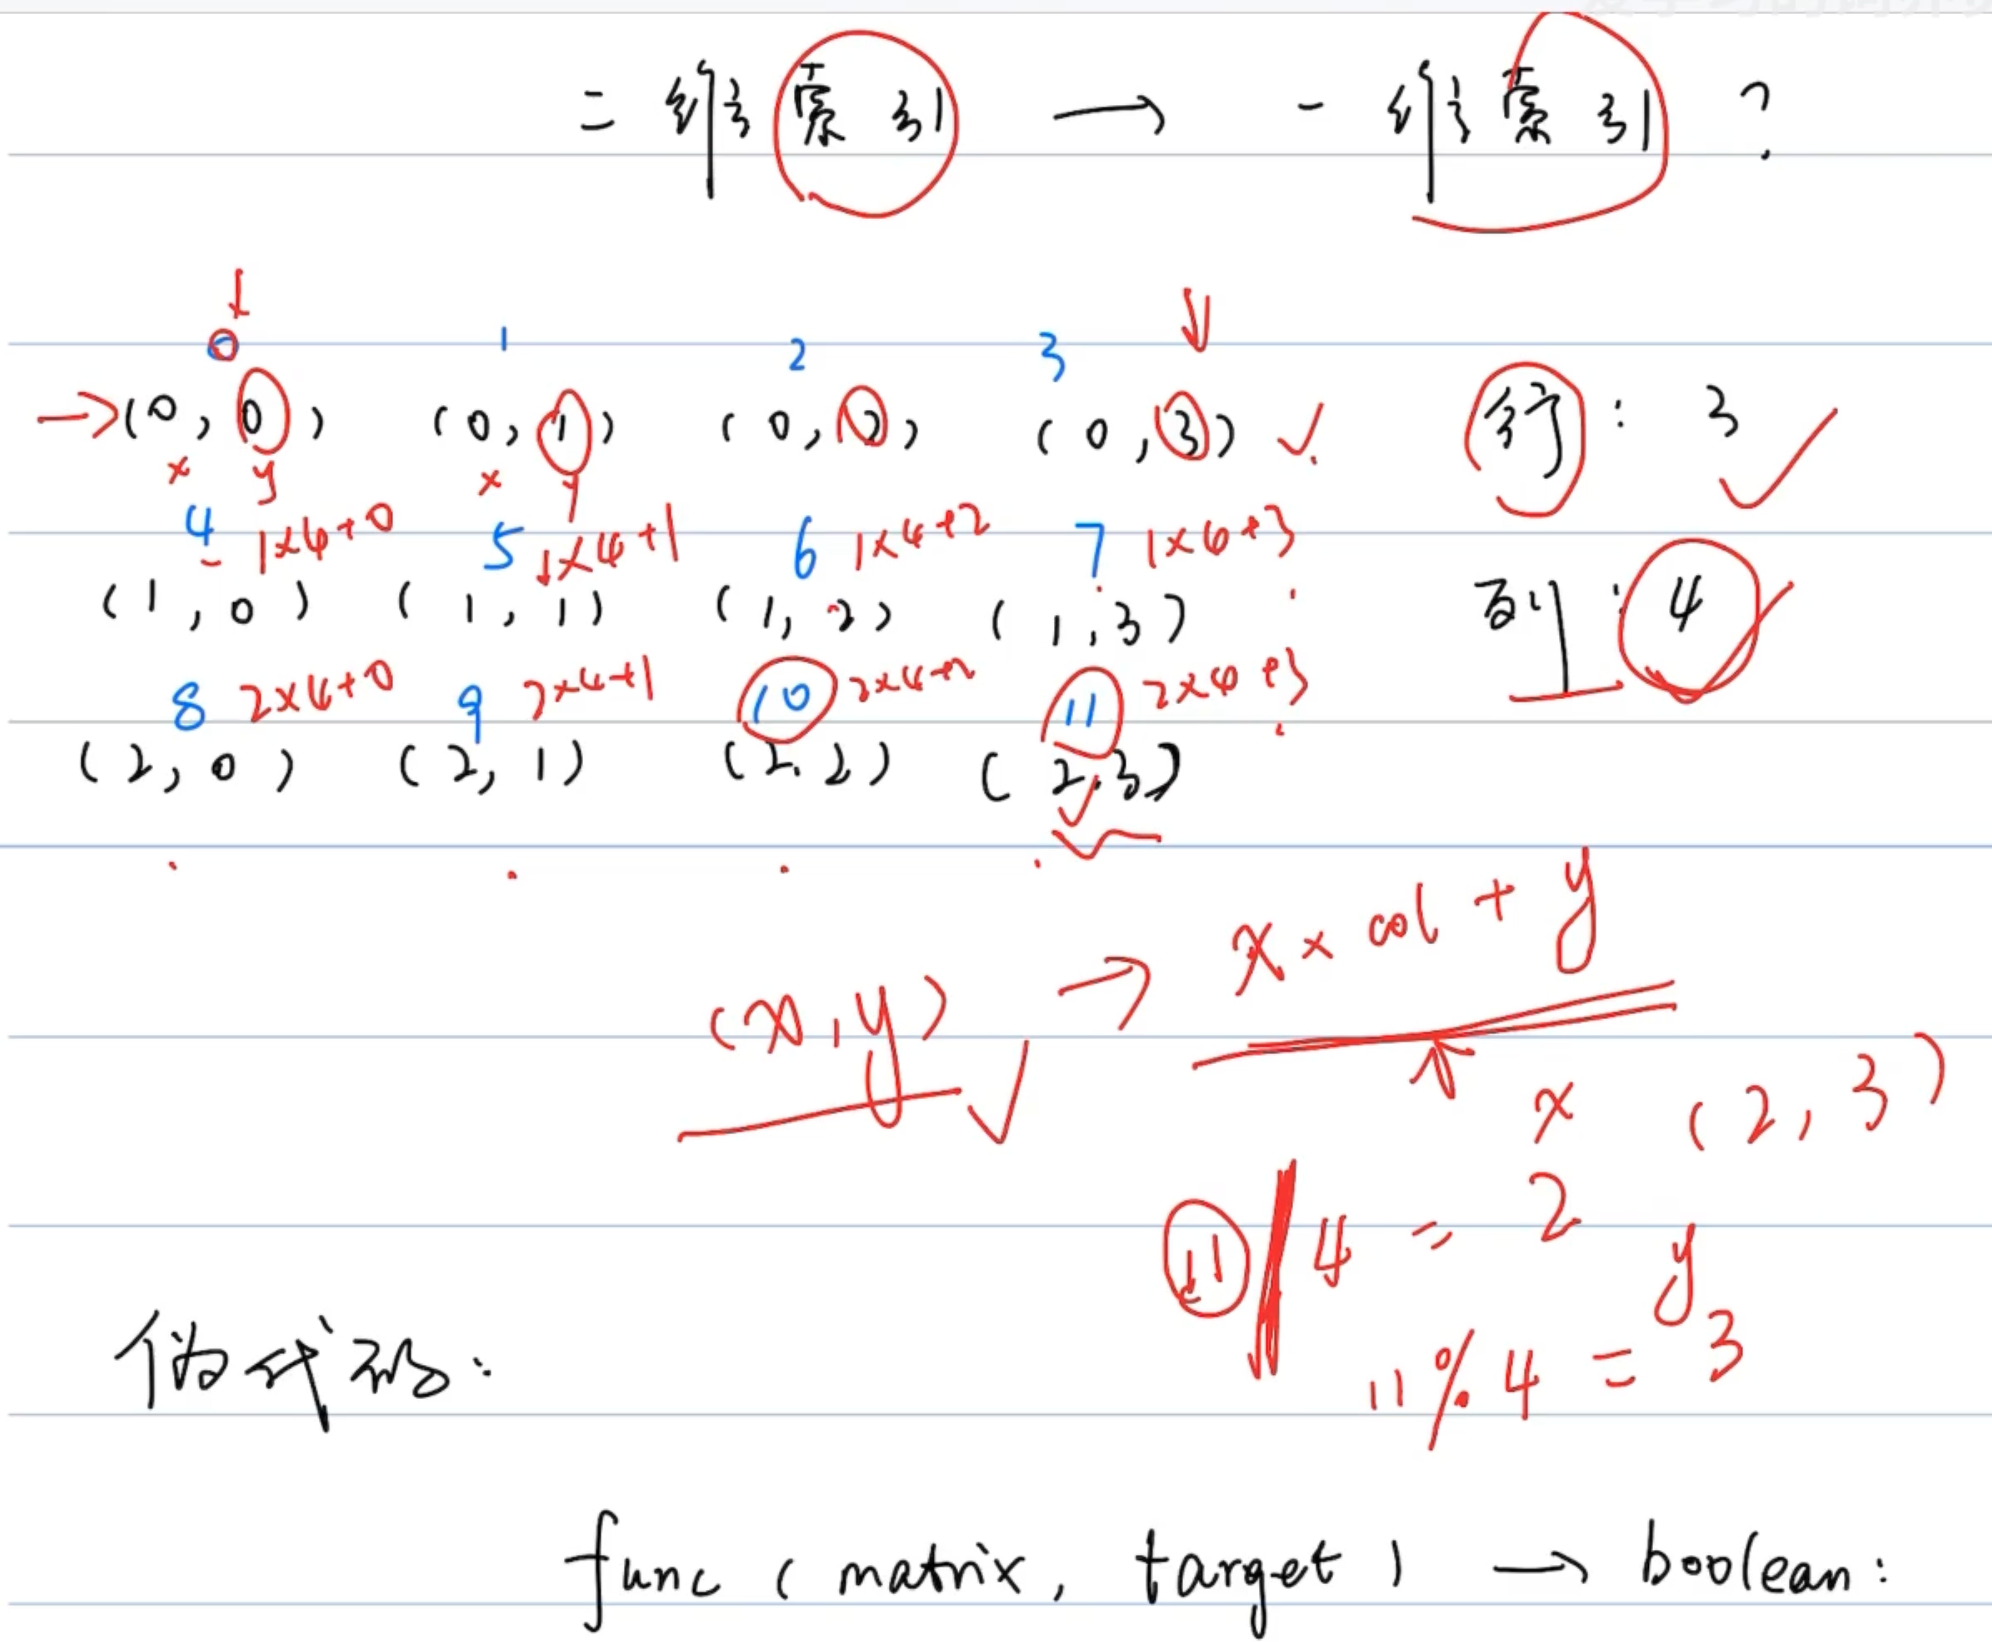 二维索引 → 一维索引?
0 1 2 3
→(0, 0) (0, 1) (0, 2) (0, 3) ✓ 行: 3 ✓
x y x y
4 1×4+0 5 1×4+1 6 1×4+2 7 1×4+3
(1, 0) (1, 1) (1, 2) (1, 3) 列: 4
8 2×4+0 9 2×4+1 10 2×4+2 11 2×4+3
(2, 0) (2, 1) (2, 2) (2, 3)
(x, y) → x × col + y
x (2, 3)
11 / 4 = 2
y
11 % 4 = 3
伪代码:
func (matrix, target) → boolean: